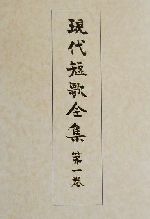 現代短歌全集 第一巻